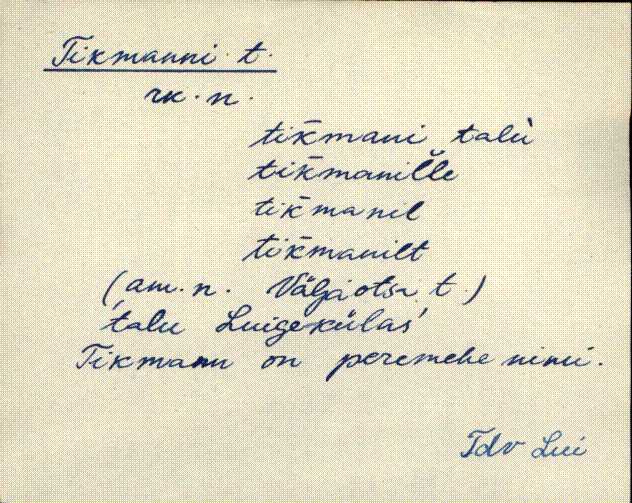 Tikmanni t.
rk. n.
tik̄mani talù
tik̄manil̆l̆e
tik̄manil
tik̄manilt
(am. n. Väljaotsa t.)
talu Luigekülas
Tikmann on peremehe nimi.
Tdv Lui